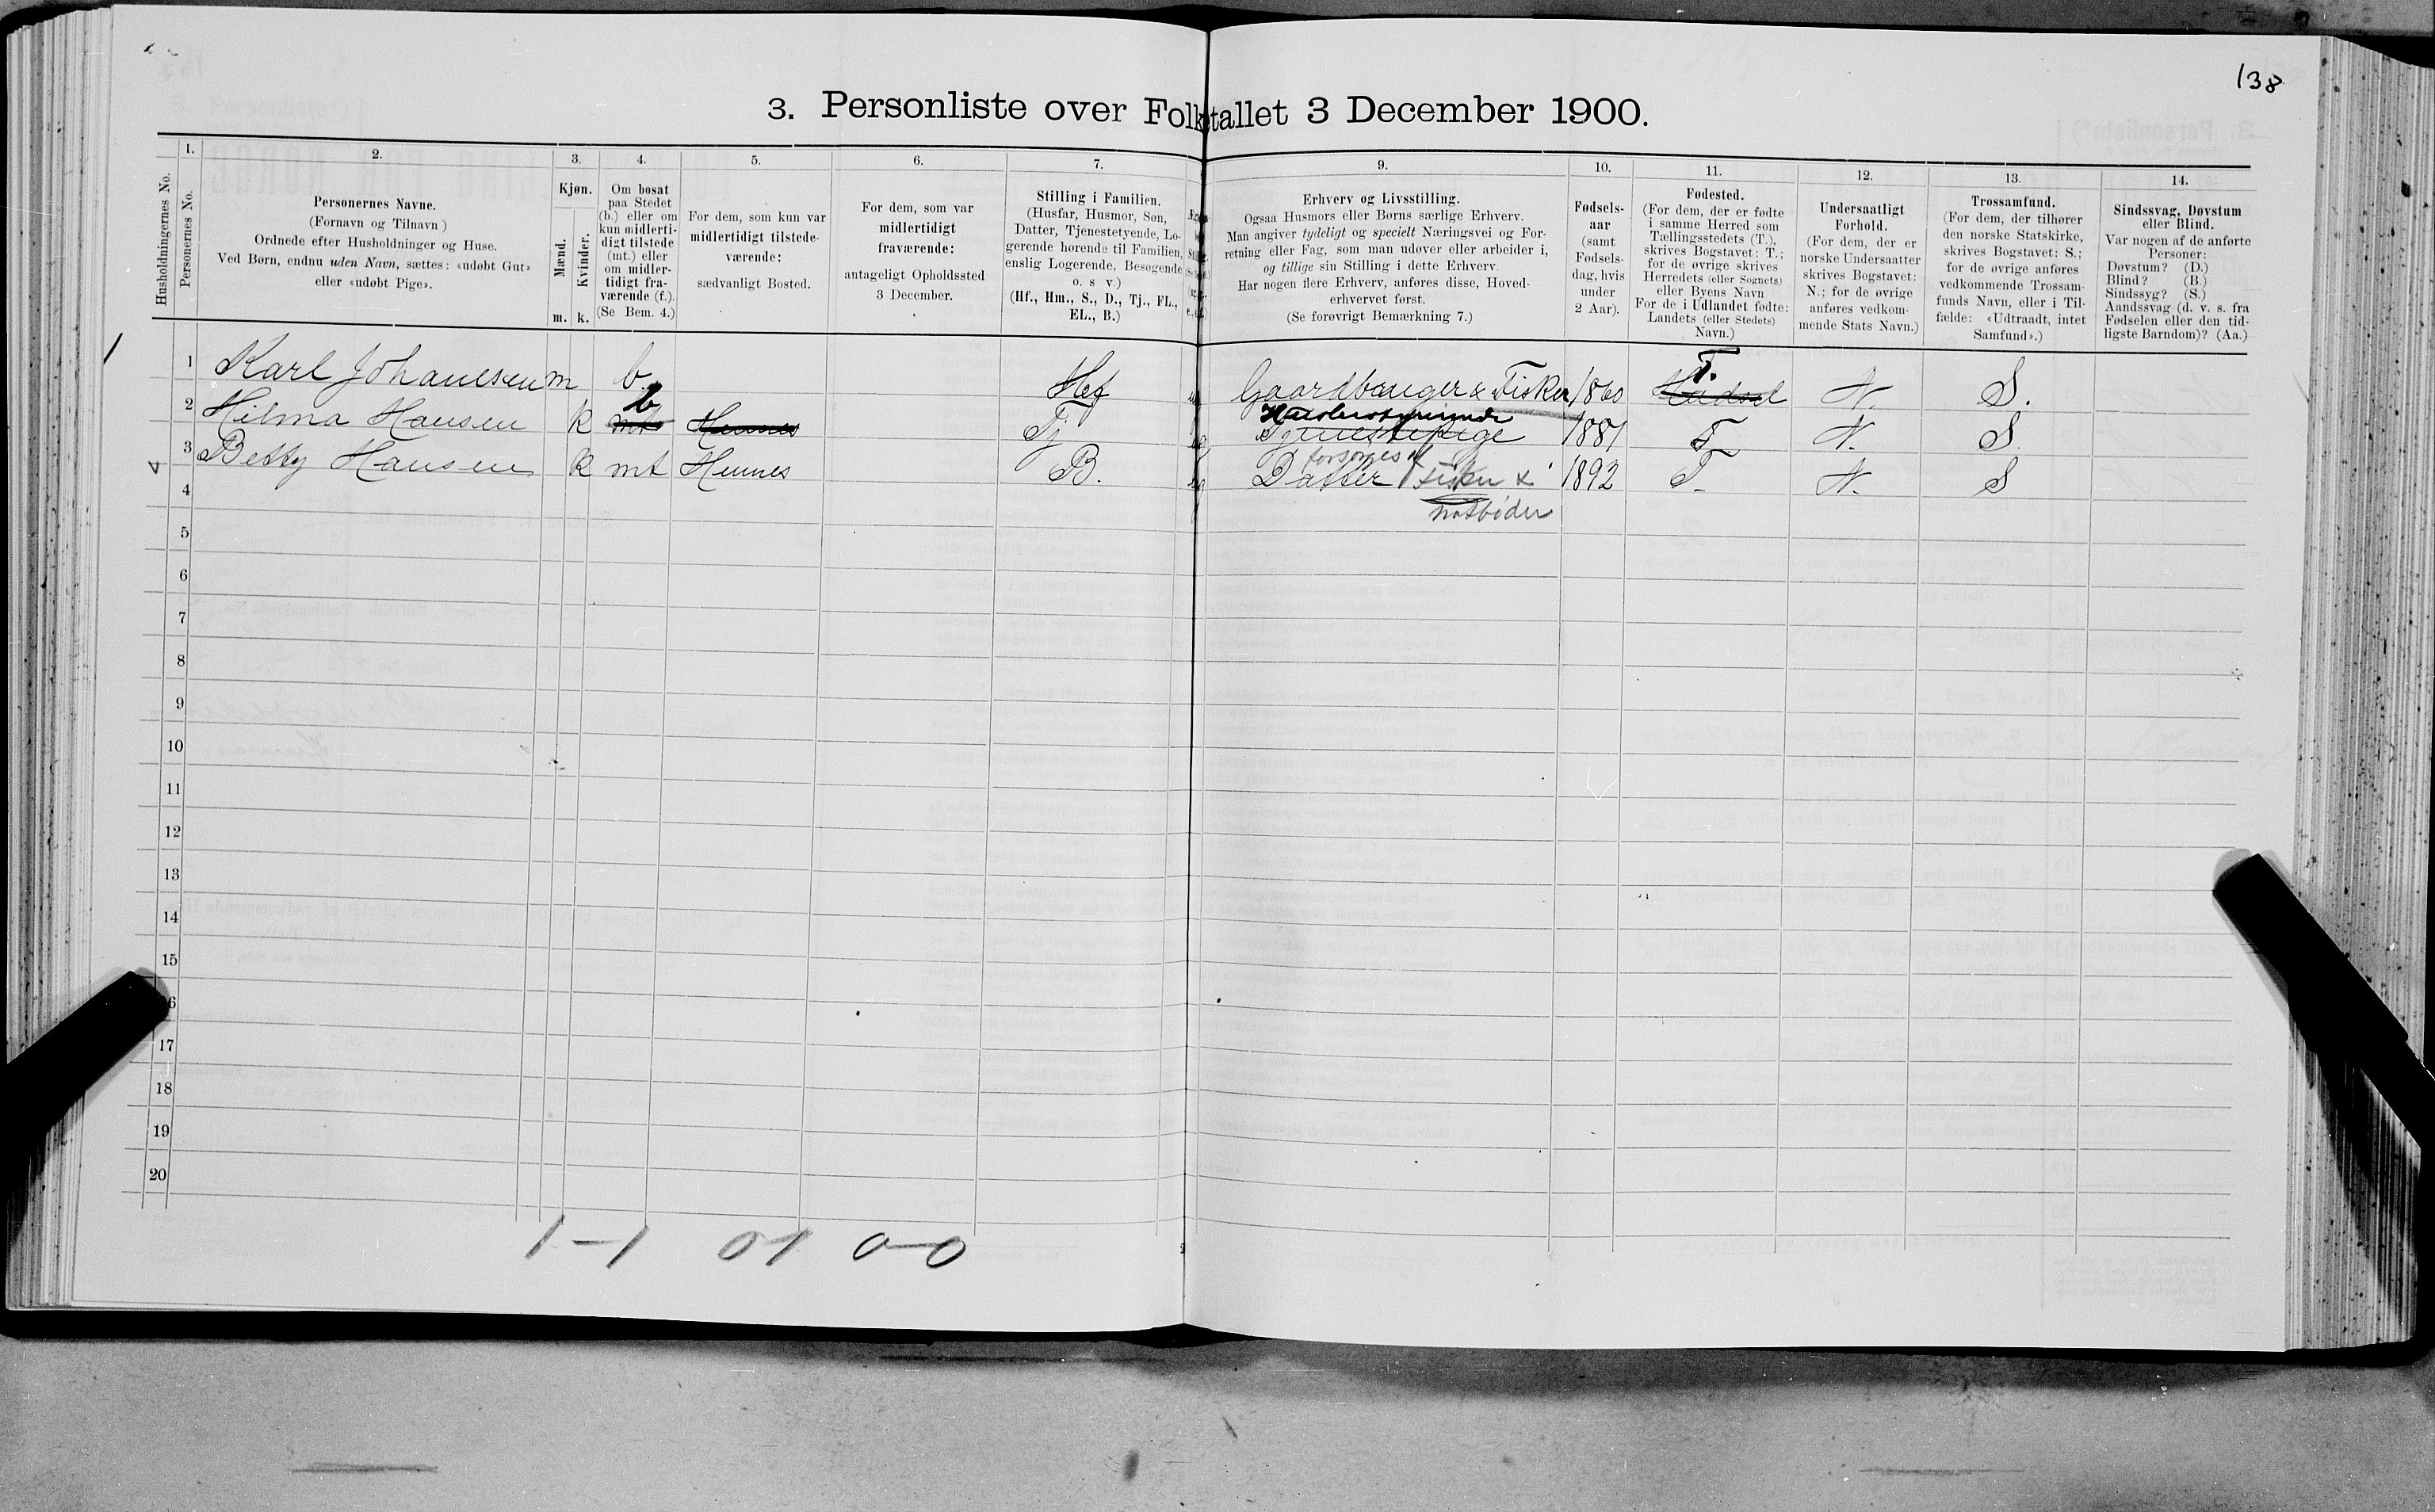 138
3. Personliste over Folketallet 3 December 1900.
Husholdningernes No.
1.
Personernes No.
2.
Personernes Navne.
(Fornavn og Tilnavn)
Ordnede efter Husholdninger og Huse.
Ved Børn, endnu uden Navn, sættes: «udøbt Gut»
eller «udøbt Pige».
3.
Kjøn.
Mænd.
Kvinder.
m. k.
4.
Om bosat
paa Stedet
(b.) eller om
kun midlerti-
digt tilstede
(mt.) eller
om midler-
tidigt fra-
værende (f.).
(Se Bem. 4.)
5.
For dem, som kun var
midlertidigt tilstede-
værende:
sædvanligt Bosted.
6.
For dem, som var
midlertidigt
fraværende:
antageligt Opholdssted
3 December.
7.
Stilling i Familien.
(Husfar, Husmor, Søn,
Datter, Tjenestetyende, Lo-
gerende hørende til Familien,
enslig Logerende, Besøgende
o. s v.)
(Hf., Hm., S., D., Tj., FL.,
EL., B.)
9.
Erhverv og Livsstilling.
Ogsaa Husmors eller Børns særlige Erhverv.
Man angiver tydeligt og specielt Næringsvei og For-
retning eller Fag, som man udøver eller arbeider i,
og tillige sin Stilling i dette Erhverv.
Har nogen flere Erhverv, anføres disse, Hoved-
erhvervet først.
(Se forøvrigt Bemærkning 7.)
10.
Fødsels-
aar
(samt
Fødsels-
dag, hvis
under
2 Aar).
11.
Fødested.
(For dem, der er fødte
i samme Herred som
Tællingsstedets (T.),
skrives Bogstavet: T.;
for de øvrige skrives
Herredets (eller Sognets)
eller Byens Navn
For de i Udlandet fødte:
Landets (eller Stedets)
Navn.)
12.
Undersaatligt
Forhold.
(For dem, der er
norske Undersaatter
skrives Bogstavet:
N.; for de øvrige
anføres vedkom-
mende Stats Navn.)
13.
Trossamfund.
(For dem, der tilhører
den norske Statskirke,
skrives Bogstavet: S.;
for de øvrige anføres
vedkommende Trossam-
funds Navn, eller i Til-
fælde: «Udtraadt, intet
Samfund».)
14.
Sindssvag, Døvstum
eller Blind.
Var nogen af de anførte
Personer:
Døvstum? (D.)
Blind? (B.)
Sindssyg? (S.)
Aandssvag (d. v. s. fra
Fødselen eller den tid-
ligste Barndom)? (Aa.)
1 1 Karl Johansen m b. Hf Gaardbruger & Fisker 1860 Hadsel T. N. S.
2 Hilma Hansen k mt b Hennes Tj Tjenestepige 1881 T N. S.
3 Betty Hansen k mt Hennes B. Datter forsørges af Fisker & 1892 T. N. S
4 notbøder
5
6
7
8
9
10
11
12
13
14
15
6
17
18
19
20
1-1 01 0-0